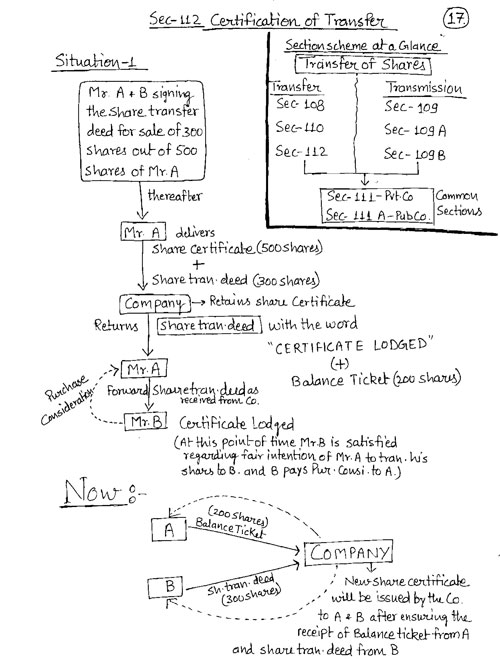 Sec-112 Certification of Transfer
17
Situation-1
Mr. A & B signing
the share transfer
deed for sale of 300
shares out of 500
shares of Mr. A
Section scheme at a Glance
Transfer of Shares
Transfer Transmission
Sec-108 Sec-109
Sec-110 Sec-109A
Sec-112 Sec-109B
Sec-111-Pvt.Co
Sec-111 A-Pub Co.
Common
Sections
thereafter
Mr. A delivers
Share Certificate (500 shares)
+
Share tran. deed (300 shares)
Company → Retains share Certificate
Returns share tran. deed with the word
"CERTIFICATE LODGED"
(+)
Balance Ticket (200 shares)
Mr. A
Purchase
Consideration
Forward Share tran. deed as
received from Co.
Mr. B Certificate Lodged
(At this point of time Mr. B is satisfied
regarding fair intention of Mr. A to tran. his
shars to B. and B pays Pur. Consi. to A.)
Now :-
A
(200 shares)
Balance Ticket
COMPANY
B
Sh. tran. deed
(300 shares)
New share certificate
will be issued by the Co.
to A & B after ensuring the
receipt of Balance ticket from A
and share tran. deed from B